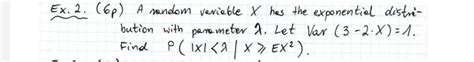 Ex. 2. (6p) A random variable X has the exponential distri-
bution with parameter λ. Let Var (3-2·X)=1.
Find P( |X| < λ | X ⩾ EX²).